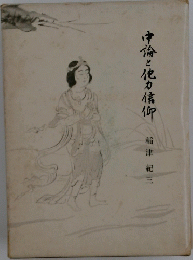 中論と他力信仰
稲津 紀三